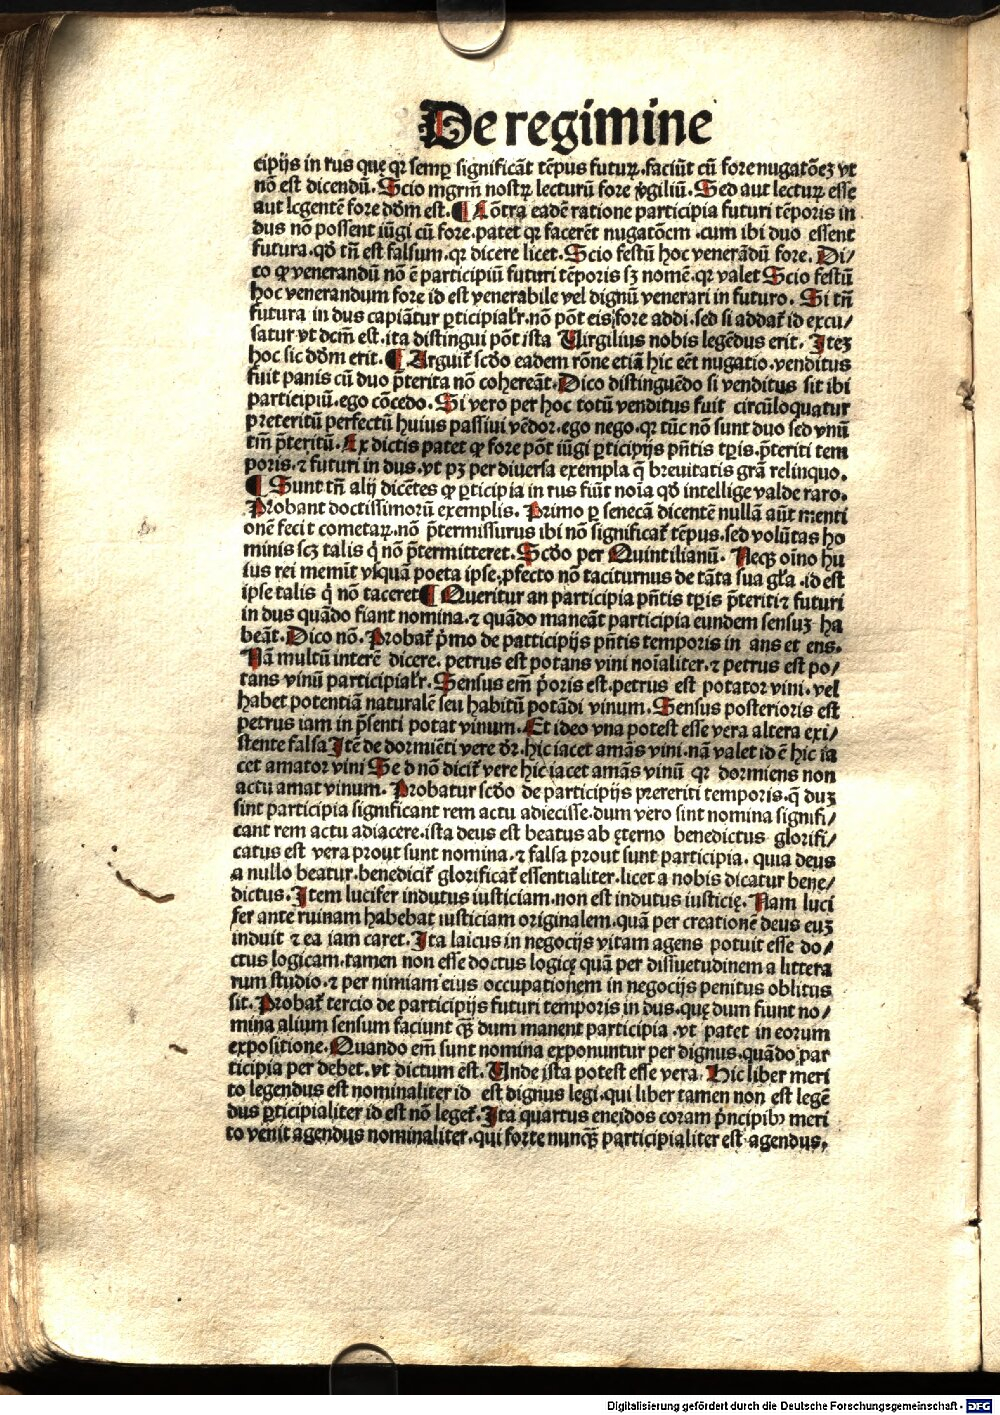 De regimine
cipijs in rus quę qꝛ semꝑ significāt tēpus futuꝝ. faciūt cū fore nugatōeꝫ vt
nō est dicendū. Scio mgr̄m nostꝝ lecturū fore v̓giliū. Sed aut lectuꝝ esse
aut legentē fore dd̄m est. ¶ Cōtra eadē ratione participia futuri tēporis in
dus nō possent iūgi cū fore. patet qꝛ facerēt nugatōem .cum ibi duo essent
futura. qd̄ tn̄ est falsum. qꝛ dicere licet. Scio festū hoc venerādū fore. Di/
co ꝙ venerandū nō ē participiū futuri tēporis sꝫ nomē. qꝛ valet Scio festū
hoc venerandum fore id est venerabile vel dignū venerari in futuro. Si tn̄
futura in dus capiātur ꝑticipialr̄. nō pōt eis fore addi. sed si addat̄ id excu/
satur vt dcm̄ est. ita distingui pōt ista Uirgilius nobis legēdus erit. Iteꝫ
hoc sic dd̄m erit. ¶ Arguit̄ scd̄o eadem rōne etiā hic eēt nugatio. venditus
fuit panis cū duo p̄terita nō cohereāt. Dico distinguēdo si venditus sit ibi
participiū. ego cōcedo. Si vero per hoc totū venditus fuit circūloquatur
preteritū perfectū huius passiui vēdor. ego nego. qꝛ tūc nō sunt duo sed vnū
tm̄ p̄teritū. Ex dictis patet ꝙ fore pōt iūgi ꝑticipijs pn̄tis tꝑis. p̄teriti tem
poris. ⁊ futuri in dus. vt pꝫ per diuersa exempla q̄ breuitatis grā relinquo.
¶ Sunt tn̄ alij dicētes ꝙ ꝑticipia in rus fiūt noīa qd̄ intellige valde raro.
Probant doctissimorū exemplis. Primo ꝑ senecā dicentē nullā aūt menti
onē feci t cometaꝝ. nō p̄termissurus ibi nō significat̄ tēpus. sed volūtas ho
minis scꝫ talis q̇ nō p̄termitteret. Scd̄o per Quintilianū. Neqꝫ oīno hu
ius rei memīt vsquā poeta ipse, ꝓfecto nō taciturnus de tāta sua gl̄a . id est
ipse talis q̇ nō taceret ¶ Queritur an participia pn̄tis tꝑis p̄teriti ⁊ futuri
in dus quādo fiant nomina. ⁊ quādo maneāt participia eundem sensuꝫ ha
beāt. Dico nō. Probat̄ p̓mo de patticipijs pn̄tis temporis in ans et ens.
Nā multū interē dicere. petrus est potans vini noīaliter. ⁊ petrus est po/
tans vinū participialr̄. Sensus em̄ p̓oris est. petrus est potator vini. vel
habet potentiā naturalē seu habitū potādi vinum. Sensus posterioris est
petrus iam in p̄senti potat vinum. Et ideo vna potest esse vera altera exi/
stente falsa Itē de dormiēti vere dr̄. hic iacet amās vini. nā valet id ē hic ia
cet amator vini Se d nō dicit̄ vere hic iacet amās vinū qꝛ dormiens non
actu amat vinum. Probatur scd̄o de participijs prereriti temporis. q̄ duꝫ
sint participia significant rem actu adiecisse. dum vero sint nomina signifi/
cant rem actu adiacere. ista deus est beatus ab ęterno benedictus glorifi/
catus est vera prout sunt nomina. ⁊ falsa prout sunt participia. quia deus
a nullo beatur. benedicit̄ glorificat̄ essentialiter. licet a nobis dicatur bene/
dictus. Item lucifer indutus iusticiam. non est indutus iusticię. Nam luci
fer ante ruinam habebat iusticiam originalem. quā per creationē deus euꝫ
induit ⁊ ea iam caret. Ita laicus in negocijs vitam agens potuit esse do/
ctus logicam. tamen non esse doctus logicę quā per dissuetudinem a littera
rum studio. ⁊ per nimiam eius occupationem in negocijs penitus oblitus
sit. Probat̄ tercio de participijs futuri temporis in dus. quę dum fiunt no/
mina alium sensum faciunt qꝫ̄ dum manent participia . vt patet in eorum
expositione. Quando em̄ sunt nomina exponuntur per dignus. quādo par
ticipia per debet. vt dictum est. Unde ista potest esse vera. Hic liber meri
to legendus est nominaliter id est dignus legi. qui liber tamen non est legē
dus ꝑticipialiter id est nō leget̄. Ita quartus eneidos coram p̓ncipibꝰ meri
to venit agendus nominaliter. qui forte nunqꝫ̄ participialiter est agendus.
Digitalisierung gefördert durch die Deutsche Forschungsgemeinschaft - DFG